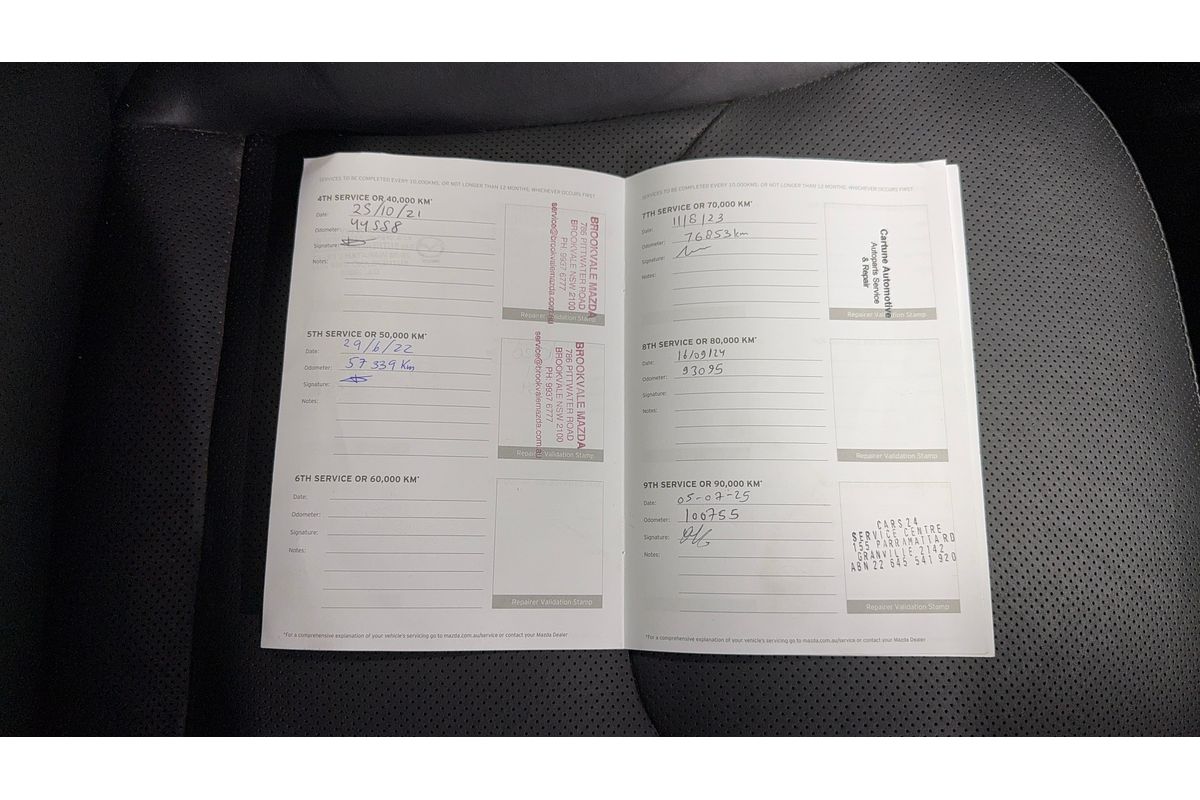 SERVICES TO BE COMPLETED EVERY 10,000KMS, OR NOT LONGER THAN 12 MONTHS, WHICHEVER OCCURS FIRST
4TH SERVICE OR 40,000 KM*
Date: 25/10/21
Odometer: 44558
Signature:
Notes:
BROOKVALE MAZDA
786 PITTWATER ROAD
BROOKVALE NSW 2100
PH: 9937 6777
service@brookvalemazda.com.au
Repairer Validation Stamp
5TH SERVICE OR 50,000 KM*
Date: 29/6/22
Odometer: 57 339 Km
Signature:
Notes:
BROOKVALE MAZDA
786 PITTWATER ROAD
BROOKVALE NSW 2100
PH: 9937 6777
service@brookvalemazda.com.au
Repairer Validation Stamp
6TH SERVICE OR 60,000 KM*
Date:
Odometer:
Signature:
Notes:
Repairer Validation Stamp
*For a comprehensive explanation of your vehicle's servicing go to mazda.com.au/service or contact your Mazda Dealer
SERVICES TO BE COMPLETED EVERY 10,000KMS, OR NOT LONGER THAN 12 MONTHS, WHICHEVER OCCURS FIRST
7TH SERVICE OR 70,000 KM*
Date: 11/8/23
Odometer: 76853km
Signature:
Notes:
Cartune Automotive
Autoparts Service
& Repair
Repairer Validation Stamp
8TH SERVICE OR 80,000 KM*
Date: 16/09/24
Odometer: 93095
Signature:
Notes:
Repairer Validation Stamp
9TH SERVICE OR 90,000 KM*
Date: 05-07-25
Odometer: 100755
Signature:
Notes:
CARS24
SERVICE CENTRE
155 PARRAMATTARD
GRANVILLE 2142
ABN 22 645 541 920
Repairer Validation Stamp
*For a comprehensive explanation of your vehicle's servicing go to mazda.com.au/service or contact your Mazda Dealer